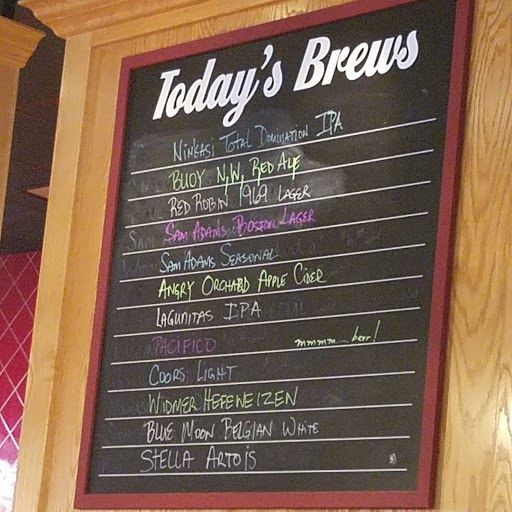 Today's Brews
NINKASI TOTAL DOMINATION IPA
BUOY N.W. RED ALE
RED ROBIN 1969 LAGER
SAM ADAMS BOSTON LAGER
SAM ADAMS SEASONAL
ANGRY ORCHARD APPLE CIDER
LAGUNITAS IPA
PACIFICO mmmm.... beer!
COORS LIGHT
WIDMER HEFEWEIZEN
BLUE MOON BELGIAN WHITE
STELLA ARTOIS